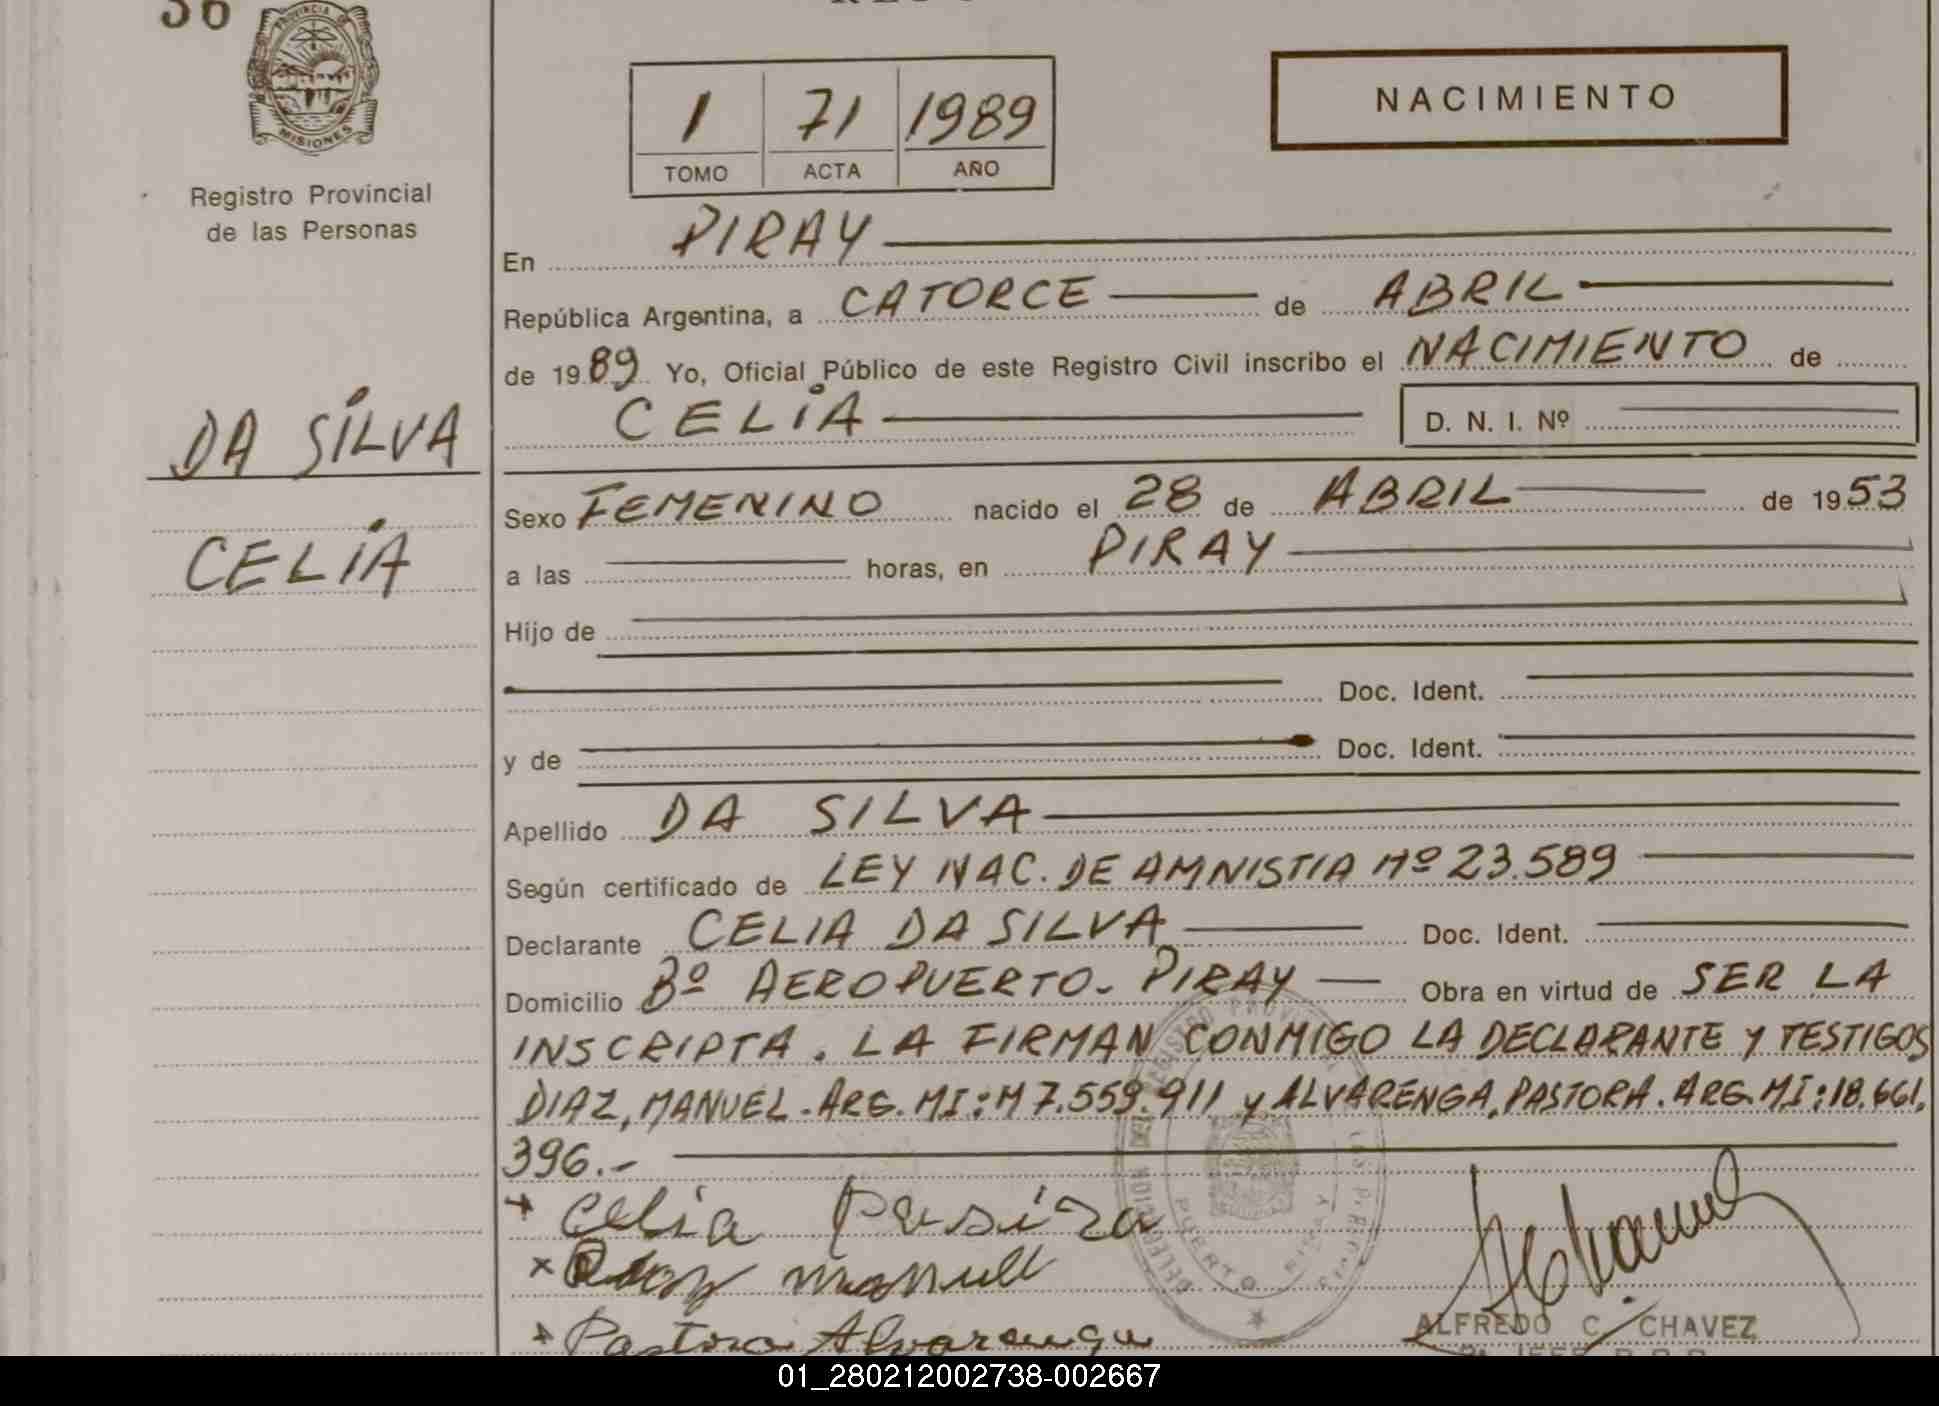 36
PROVINCIA DE
MISIONES
Registro Provincial
de las Personas
DA SILVA
CELIA
1 71 1989
TOMO ACTA AÑO
NACIMIENTO
En PIRAY
República Argentina, a CATORCE de ABRIL
de 1989 Yo, Oficial Público de este Registro Civil inscribo el NACIMIENTO de
CELIA D. N. I. Nº
Sexo FEMENINO nacido el 28 de ABRIL de 1953
a las horas, en PIRAY
Hijo de
Doc. Ident.
y de Doc. Ident.
Apellido DA SILVA
Según certificado de LEY NAC. DE AMNISTIA Nº 23.589
Declarante CELIA DA SILVA Doc. Ident.
Domicilio Bº AEROPUERTO - PIRAY Obra en virtud de SER LA
INSCRIPTA. LA FIRMAN CONMIGO LA DECLARANTE Y TESTIGOS
DIAZ, MANUEL. ARG. MI: M 7.559.911 y ALVARENGA, PASTORA. ARG. MI: 18.661.
396.-
Celia
manuel
Pastora Alvarenga
PUERTO PIRAY
ALFREDO C. CHAVEZ
01_280212002738-002667